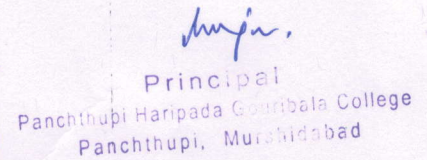 Principal
Panchthupi Haripada Gouribala College
Panchthupi, Murshidabad